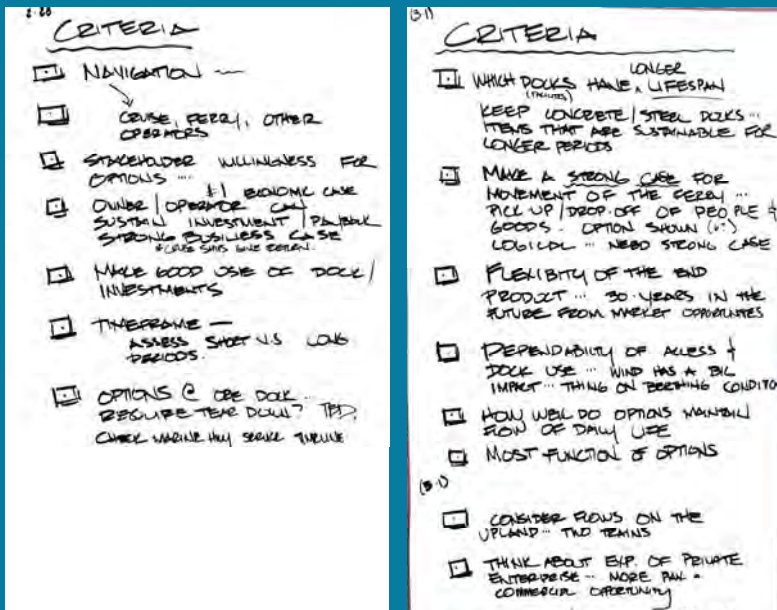 2.20
CRITERIA
NAVIGATION —
CRUISE, FERRY, OTHER
OPERATORS
STAKEHOLDER WILLINGNESS FOR
OPTIONS ....
#1 ECONOMIC CASE
OWNER / OPERATOR CAN
SUSTAIN INVESTMENT / PAYBACK
STRONG BUSINESS CASE
*CRUISE SHIPS GIVE RETURN.
MAKE GOOD USE OF DOCK /
INVESTMENTS
TIMEFRAME —
ASSESS SHORT V.S LONG
PERIODS.
OPTIONS @ ORE DOCK ...
REQUIRE TEAR DOWN? TBD.
CHECK MARINE HWY SERVICE TIMELINE
(3.1)
CRITERIA
LONGER
WHICH DOCKS HAVE ^ LIFESPAN
(FACILITIES)
KEEP CONCRETE / STEEL DOCKS ...
ITEMS THAT ARE SUSTAINABLE FOR
LONGER PERIODS
MAKE A STRONG CASE FOR
MOVEMENT OF THE FERRY ...
PICK UP / DROP-OFF OF PEOPLE +
GOODS. OPTION SHOWN
LOGICAL ... NEED STRONG CASE
FLEXIBITY OF THE END
PRODUCT ... 30 YEARS IN THE
FUTURE FROM MARKET OPPORTUNITES
DEPENDABILITY OF ACCESS +
DOCK USE ... WIND HAS A BIG
IMPACT ... THING ON BERTHING CONDITIO
HOW WELL DO OPTIONS MAINTAIN
FLOW OF DAILY LIFE
MOST FUNCTION OF OPTIONS
(3.1)
CONSIDER FLOWS ON THE
UPLAND ... TWO TRAINS
THINK ABOUT EXP. OF PRIVATE
ENTERPRISE ... MORE
COMMERCIAL OPPORTUNITY